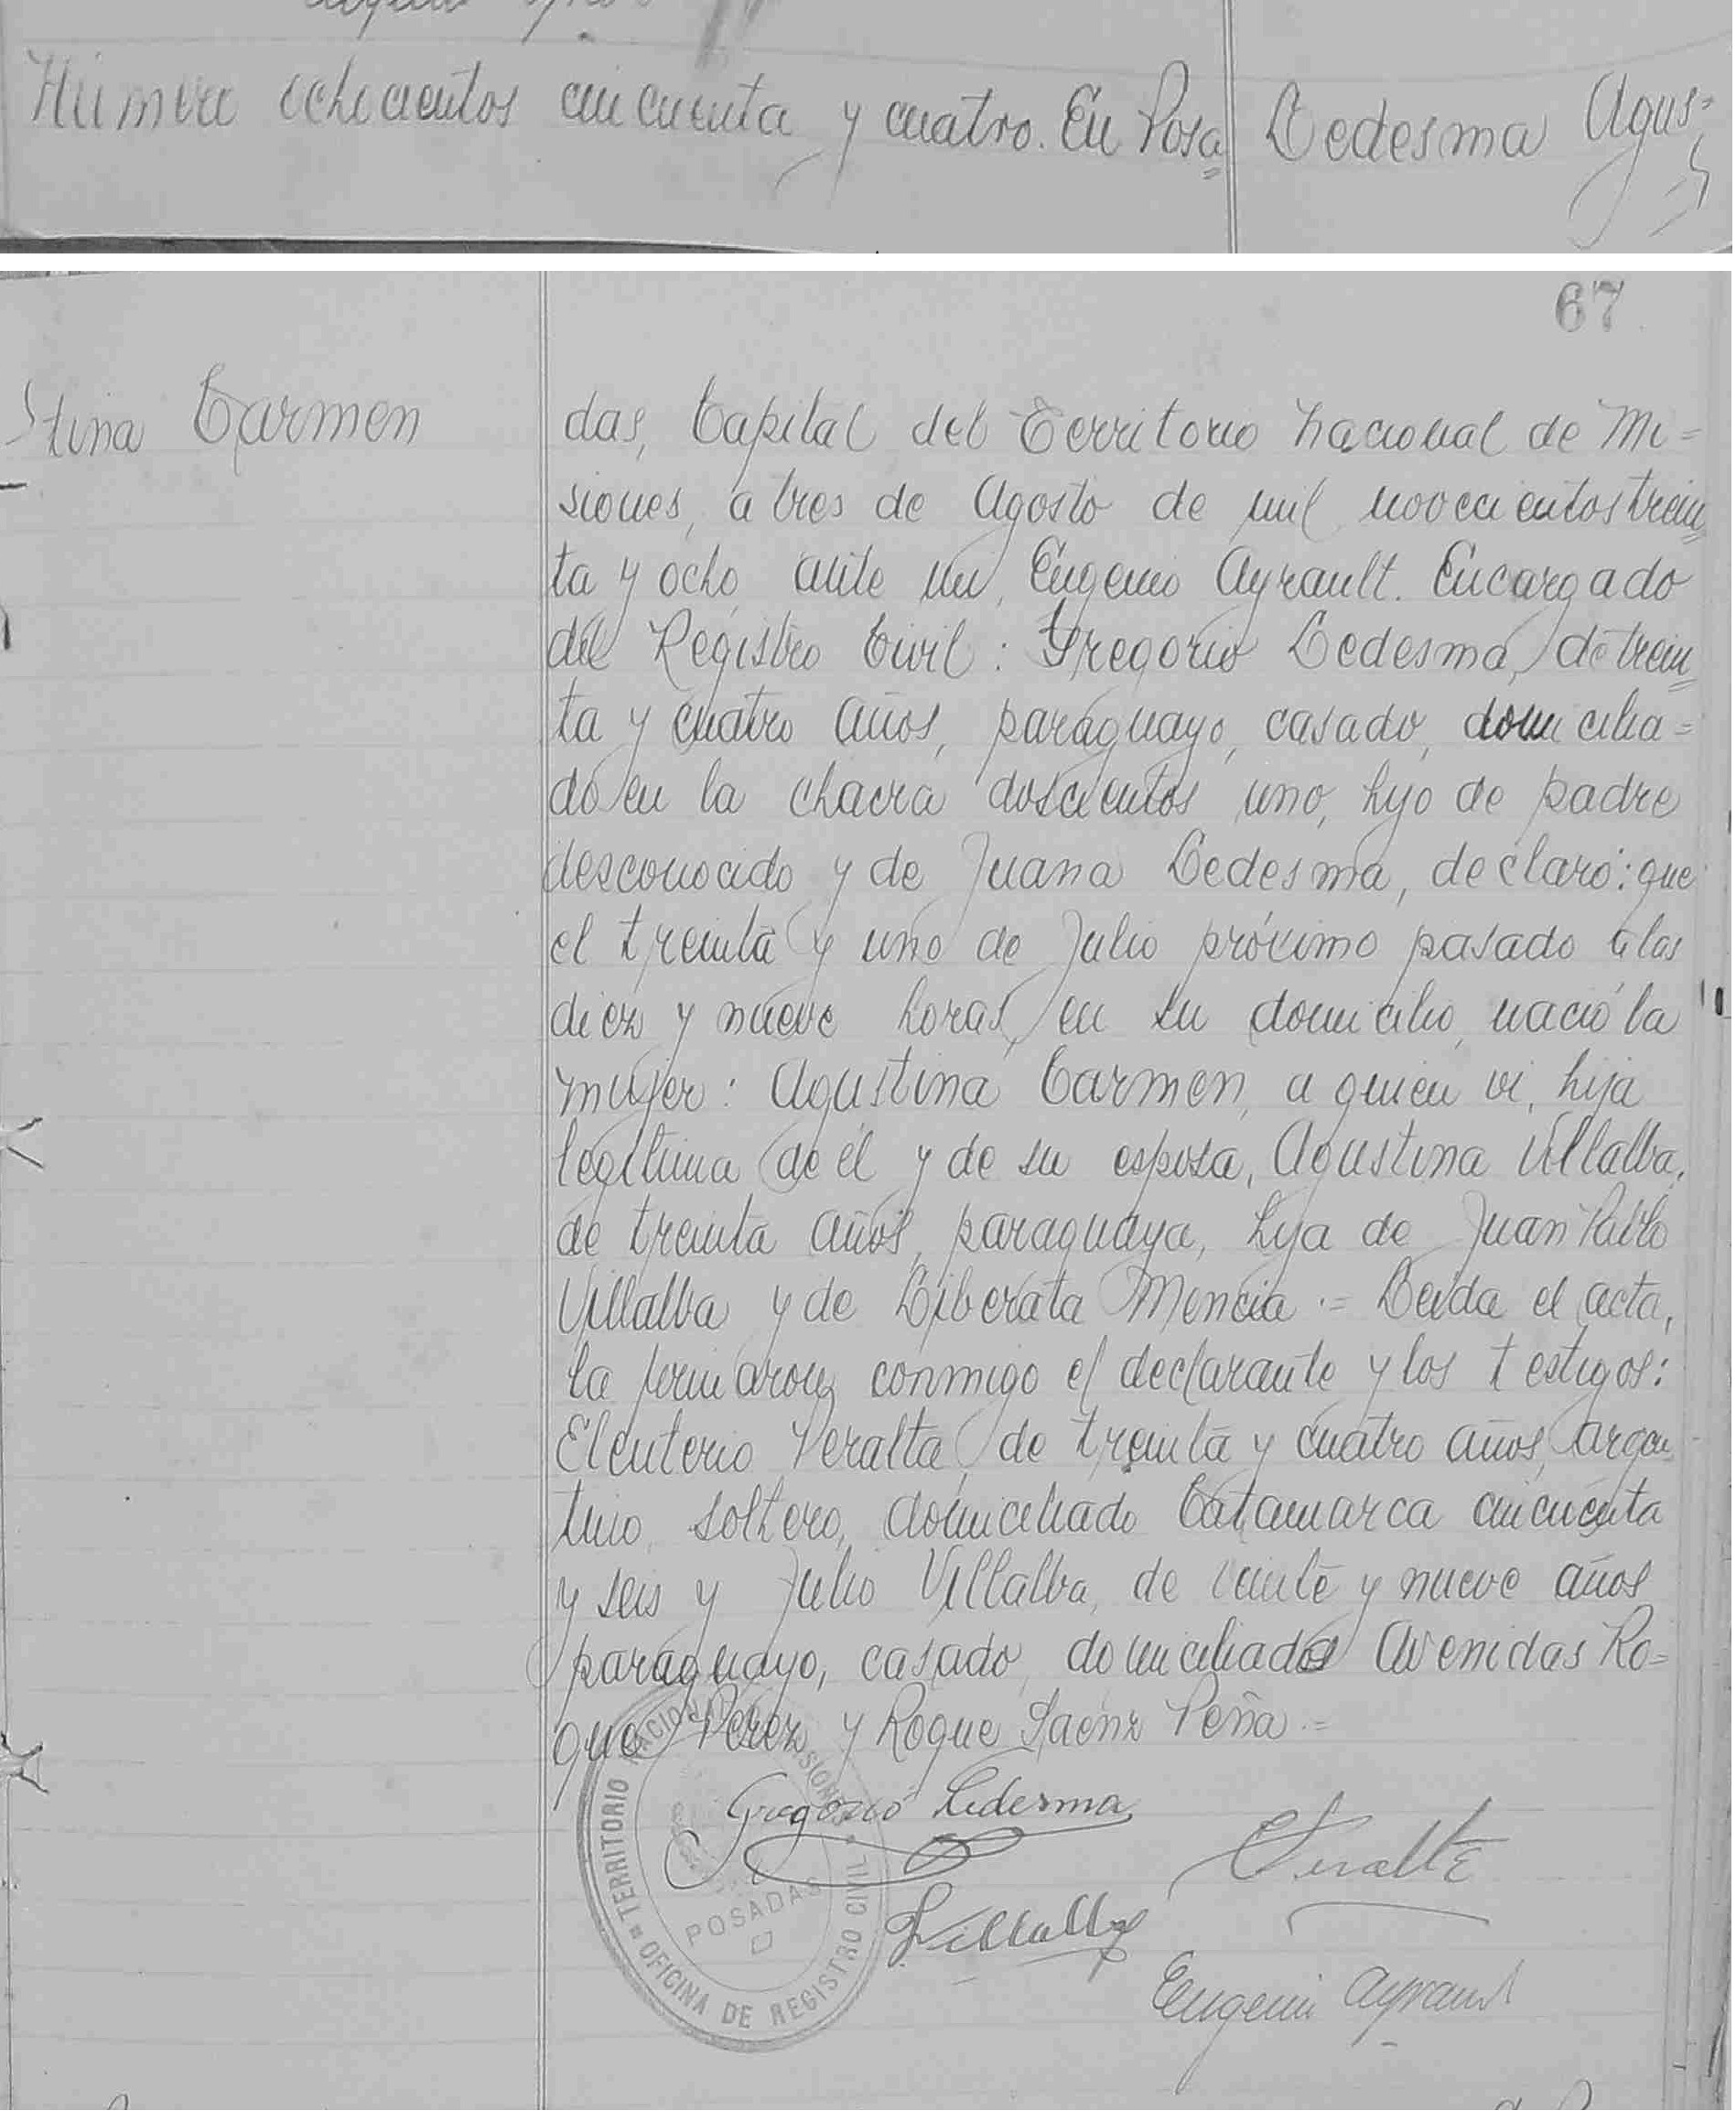 Número ochocientos cincuenta y cuatro. En Posa=
Ledesma Agus=
67
tina Carmen
das, Capital del Territorio Nacional de Mi=
siones, a tres de Agosto de mil novecientos trein=
ta y ocho, ante mi, Eugenio Ayrault. Encargado
del Registro Civil: Gregorio Ledesma, de trein=
ta y cuatro años, paraguayo, casado, domicilia=
do en la chacra doscientos uno, hijo de padre
desconocido y de Juana Ledesma, declaró: que
el treinta y uno de Julio próximo pasado a las
diez y nueve horas, en su domicilio, nació la
mujer: Agustina Carmen, a quien vi, hija
legítima de él y de su esposa, Agustina Villalba,
de treinta años, paraguaya, hija de Juan Pablo
Villalba y de Liberata Mencia.= Leída el acta,
la firmaron conmigo el declarante y los testigos:
Eleuterio Peralta, de treinta y cuatro años, argen=
tino, soltero, domiciliado Catamarca cincuenta
y seis y Julio Villalba, de veinte y nueve años
paraguayo, casado, domiciliado Avenidas Ro=
que Perez y Roque Saenz Peña.=
Gregorio Ledesma
EPeralta
JVillalba
Eugenio Ayrault
TERRITORIO NACIONAL DE MISIONES
POSADAS
OFICINA DE REGISTRO CIVIL